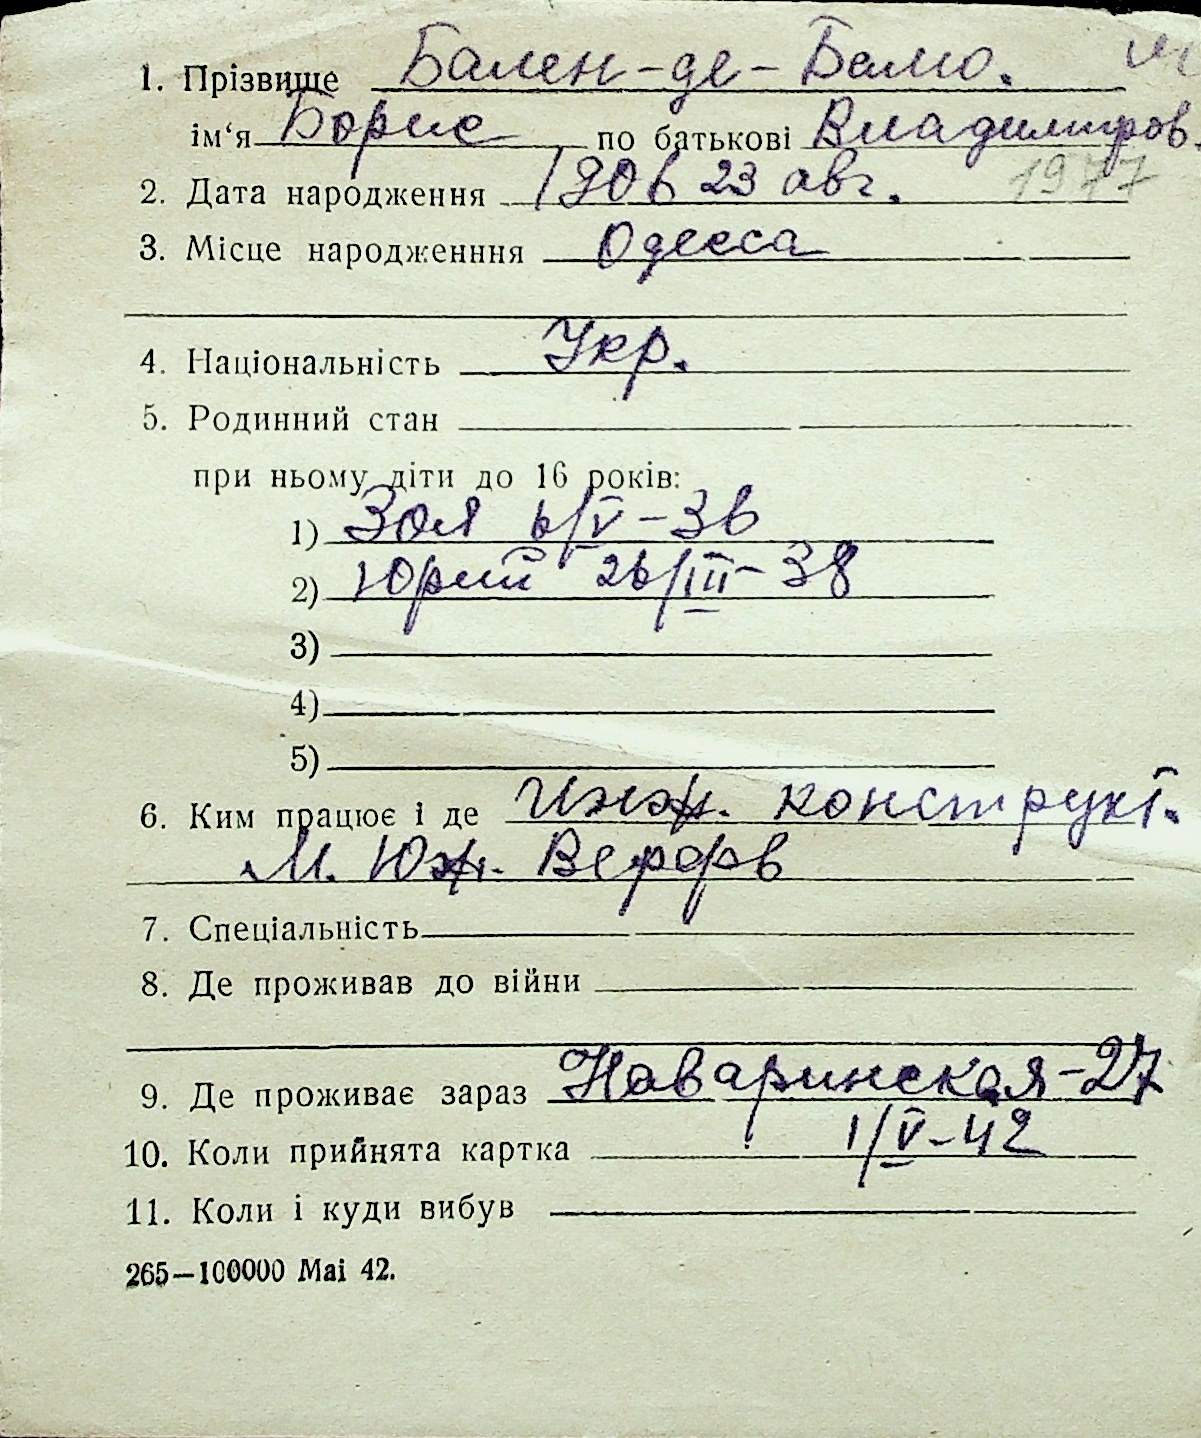 1. Прізвище Бален-де-Балю. м
ім‘я Борис по батькові Владимиров.
2. Дата народження 1906 23 авг. 1977
3. Місце народженння Одесса
4. Національність Укр.
5. Родинний стан
при ньому діти до 16 років:
1) Зоя 6/V-36
2) Юрий 26/III-38
3)
4)
5)
6. Ким працює і де Инж. конструкт.
М. Юж. Верфь
7. Спеціальність
8. Де проживав до війни
9. Де проживає зараз Наваринская-27
10. Коли прийнята картка 1/V-42
11. Коли і куди вибув
265—100000 Mai 42.